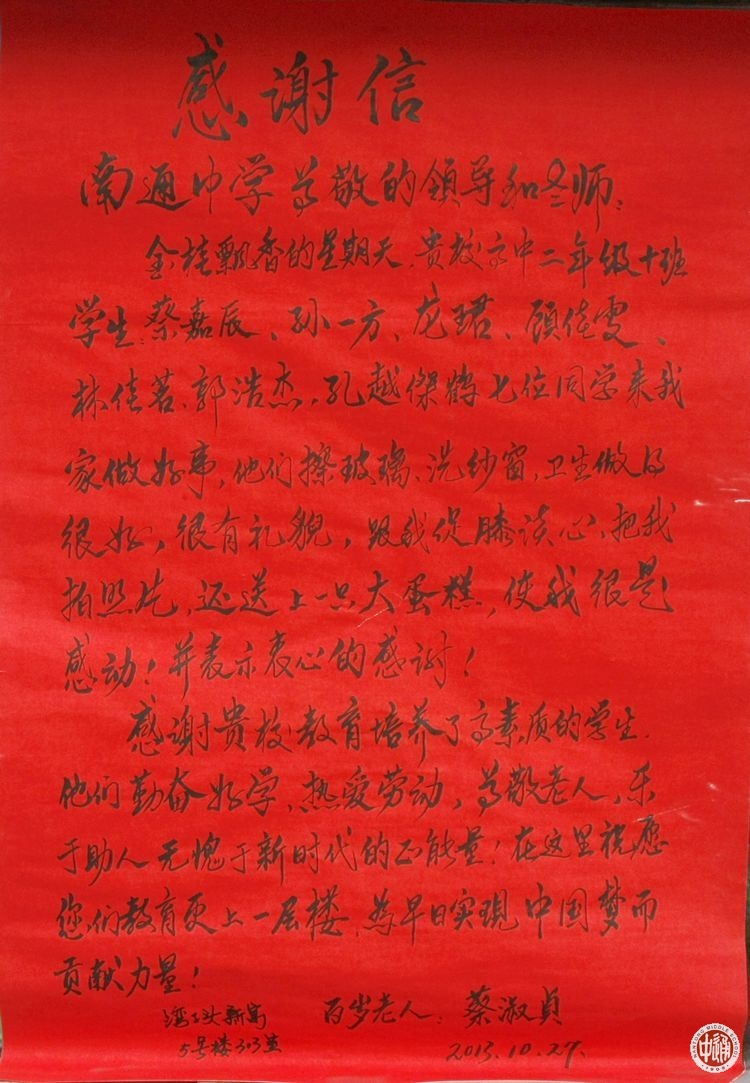 感谢信
南通中学尊敬的领导和老师：
金桂飘香的星期天，贵校高中二年级十班
学生：蔡嘉辰、孙一方、龙珺、顾佳雯、
林佳茗、郭浩杰，孔越傑鹤七位同学来我
家做好事，他们擦玻璃、洗纱窗，卫生做得
很好，很有礼貌，跟我促膝谈心，把我
拍照片，还送上一只大蛋糕，使我很是
感动！并表示衷心的感谢！
感谢贵校教育培养了高素质的学生.
他们勤奋好学，热爱劳动，尊敬老人，乐
于助人无愧于新时代的正能量！在这里祝愿
您们教育更上一层楼，為早日实現中国梦而
贡献力量！
百岁老人：蔡淑貞
5号楼303室
2013.10.27.
中通
NANTONG MIDDLE SCHOOL
1909